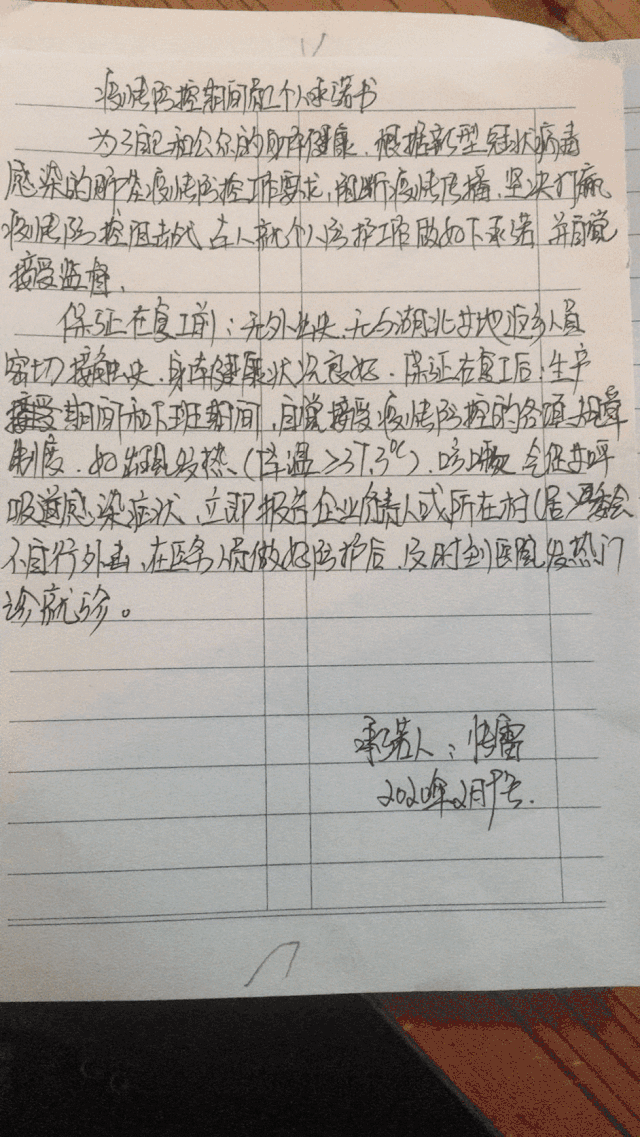 疫情防控期间员工个人承诺书
为了自己和公众的身体健康，根据新型冠状病毒
感染的肺炎疫情防控工作要求，阻断疫情传播，坚决打赢
疫情防控阻击战，本人就个人防护工作做如下承诺，并自觉
接受监督，
保证在复工前：无外出史，无与湖北等地返乡人员
密切接触史，身体健康状况良好，保证在复工后：生产
期间和下班期间，自觉接受疫情防控的各项规章
制度，如出现发热（体温≥37.3℃），咳嗽，等呼
吸道感染症状，立即报告企业负责人或所在村（居）委会
不自行外出，在医务人员做好防护后，及时到医院发热门
诊就诊。
承诺人：雷
2020年2月号.